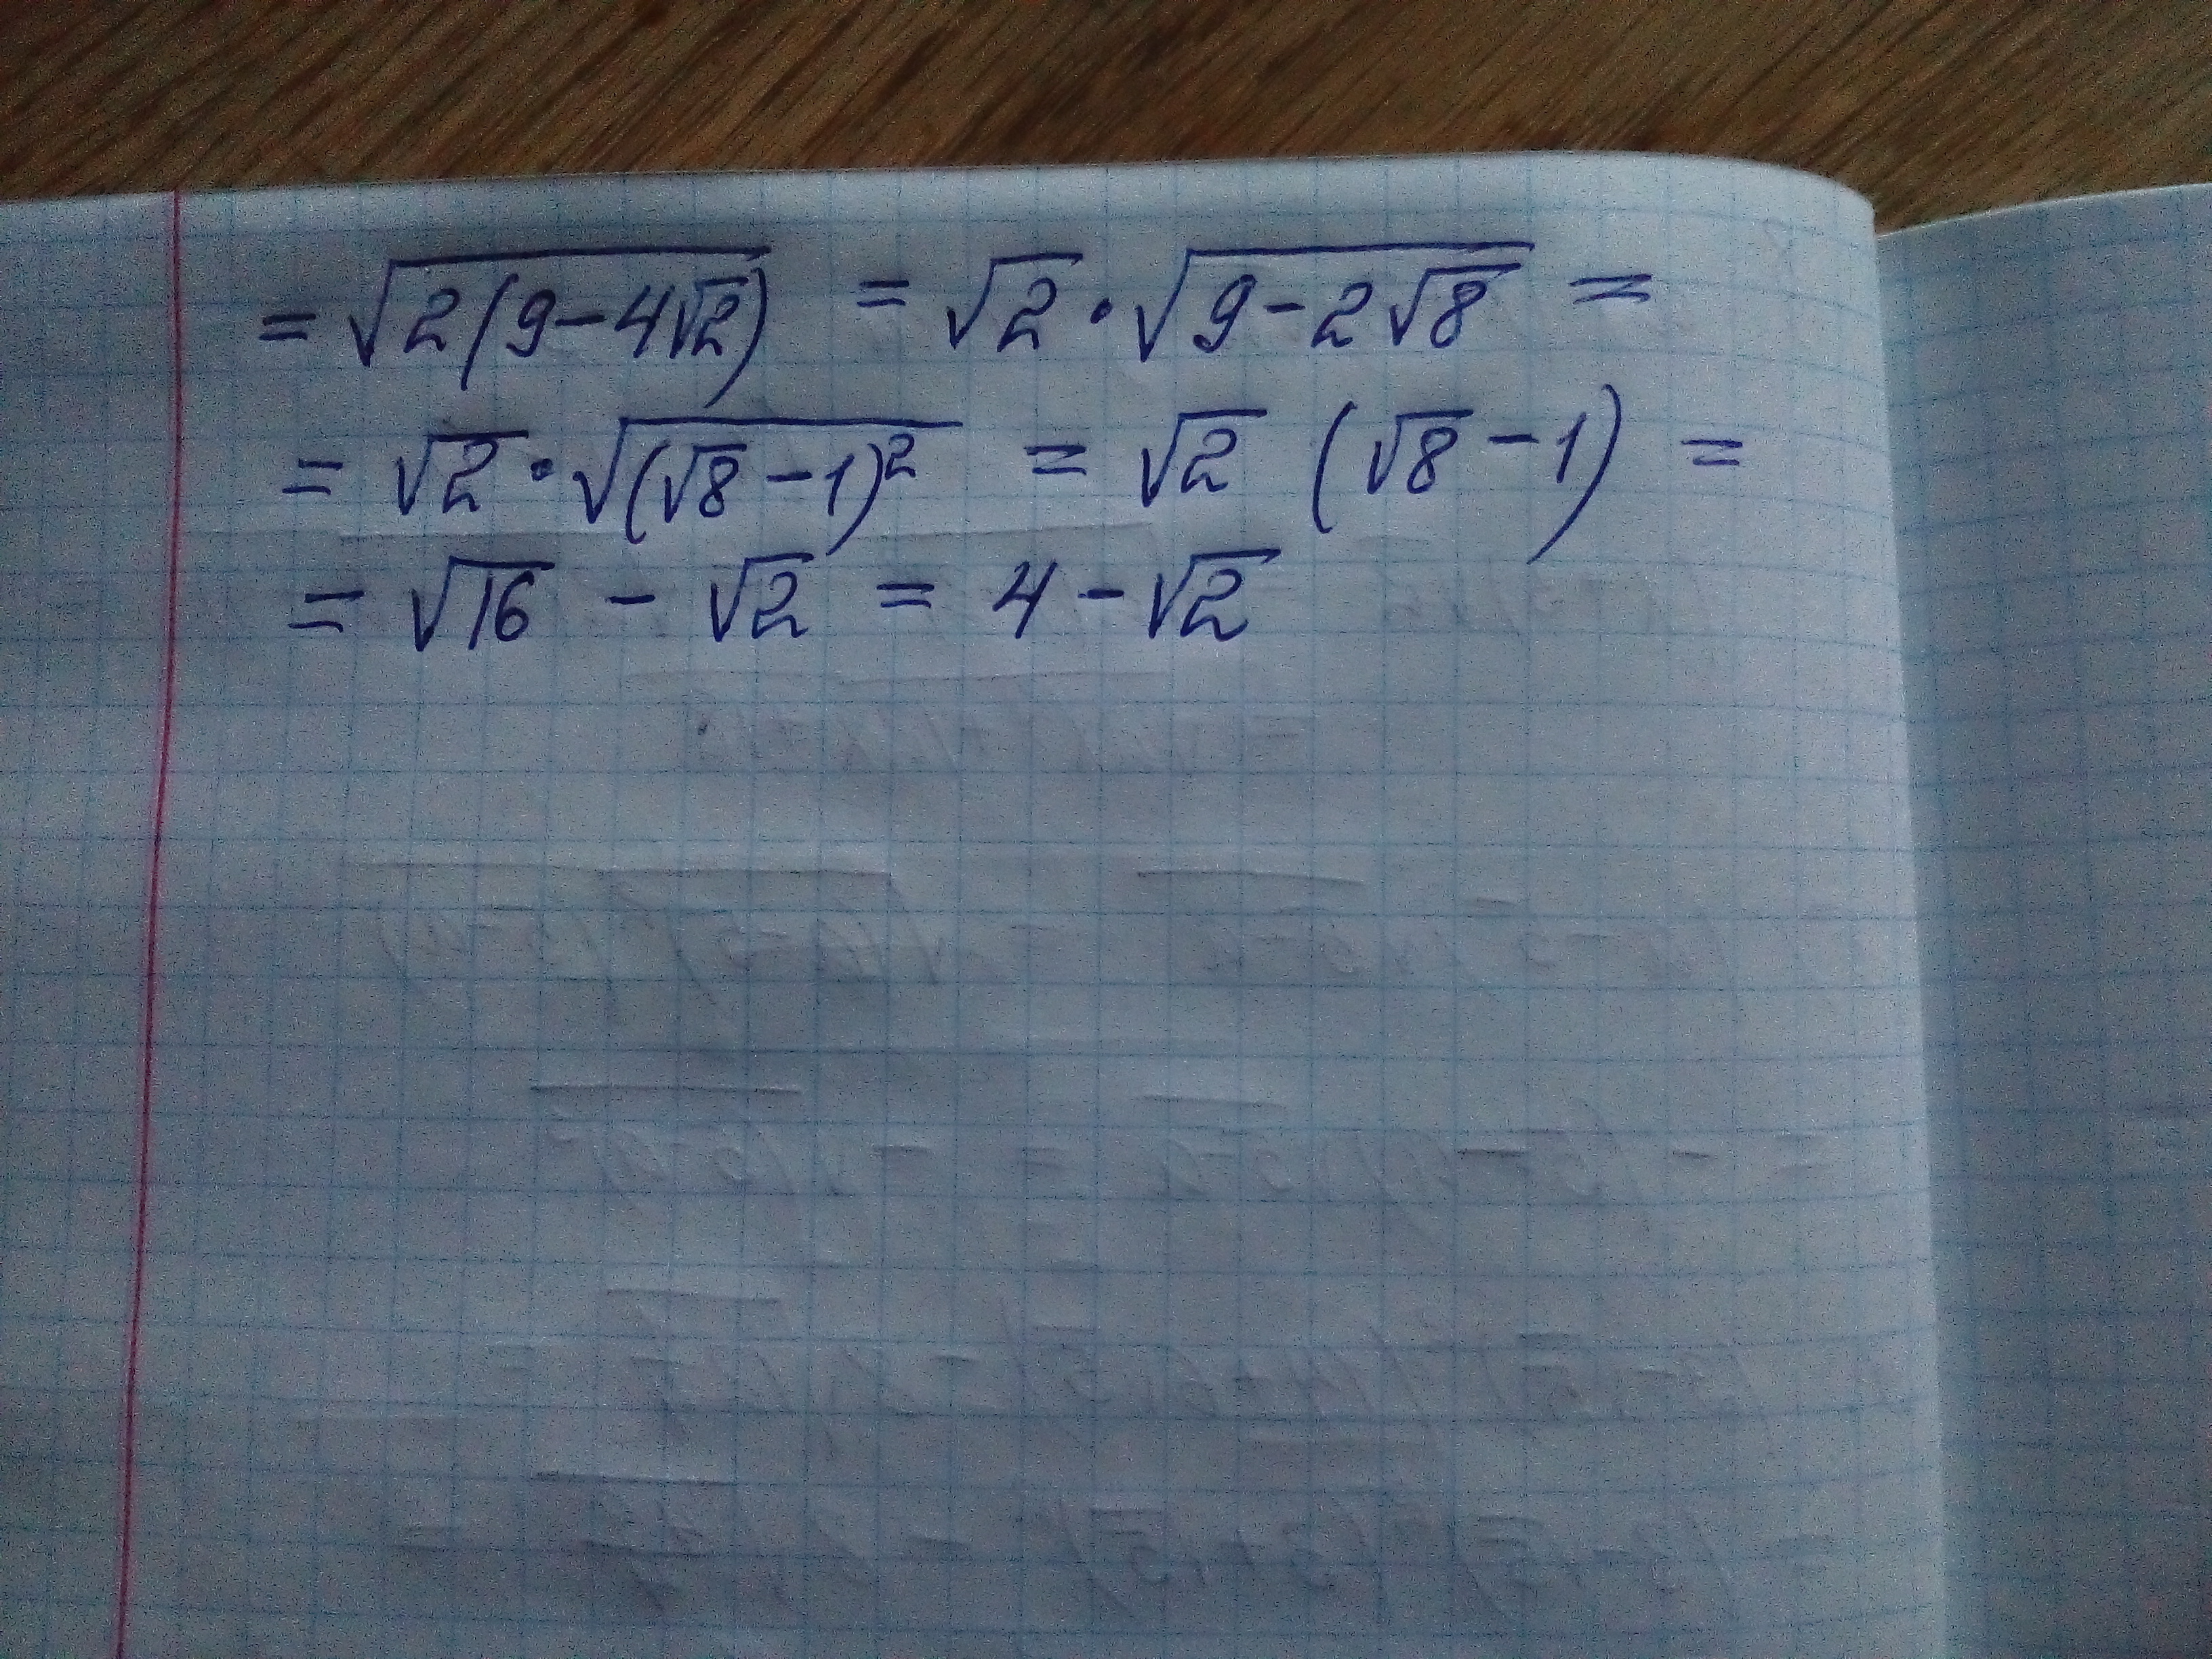 = √(2(9-4√2)) = √2 · √(9-2√8) =
= √2 · √((√8-1)²) = √2 (√8-1) =
= √16 - √2 = 4-√2